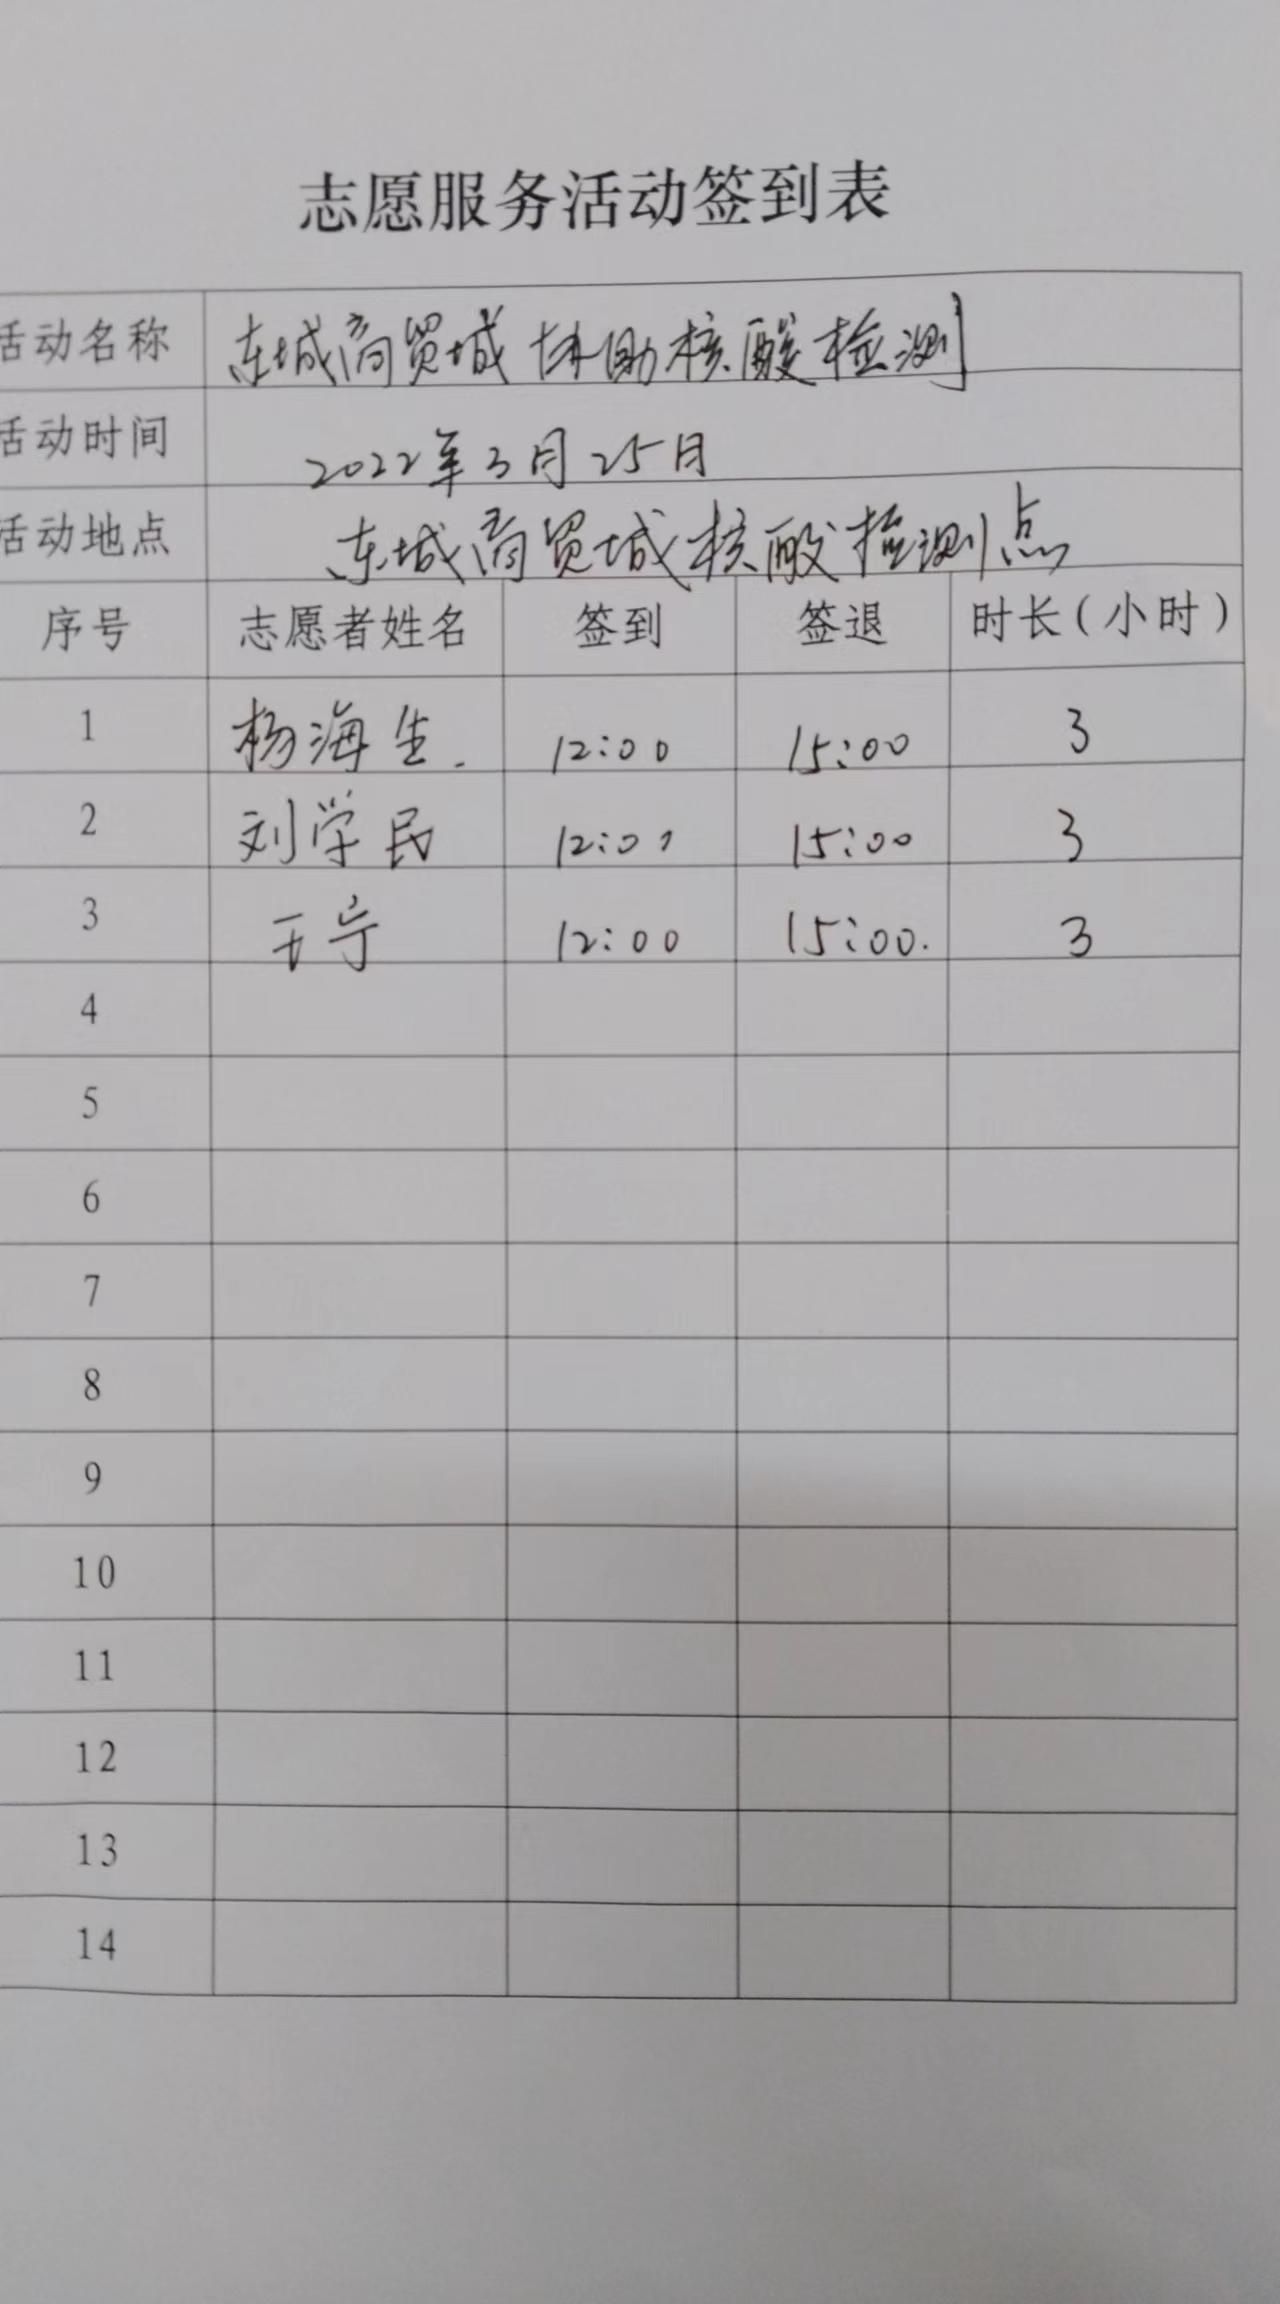 志愿服务活动签到表
活动名称 东城商贸城协助核酸检测
活动时间 2022年3月25日
活动地点 东城商贸城核酸检测点
序号 志愿者姓名 签到 签退 时长(小时)
1 杨海生. 12:00 15:00 3
2 刘学民 12:00 15:00 3
3 于宁 12:00 15:00. 3
4
5
6
7
8
9
10
11
12
13
14